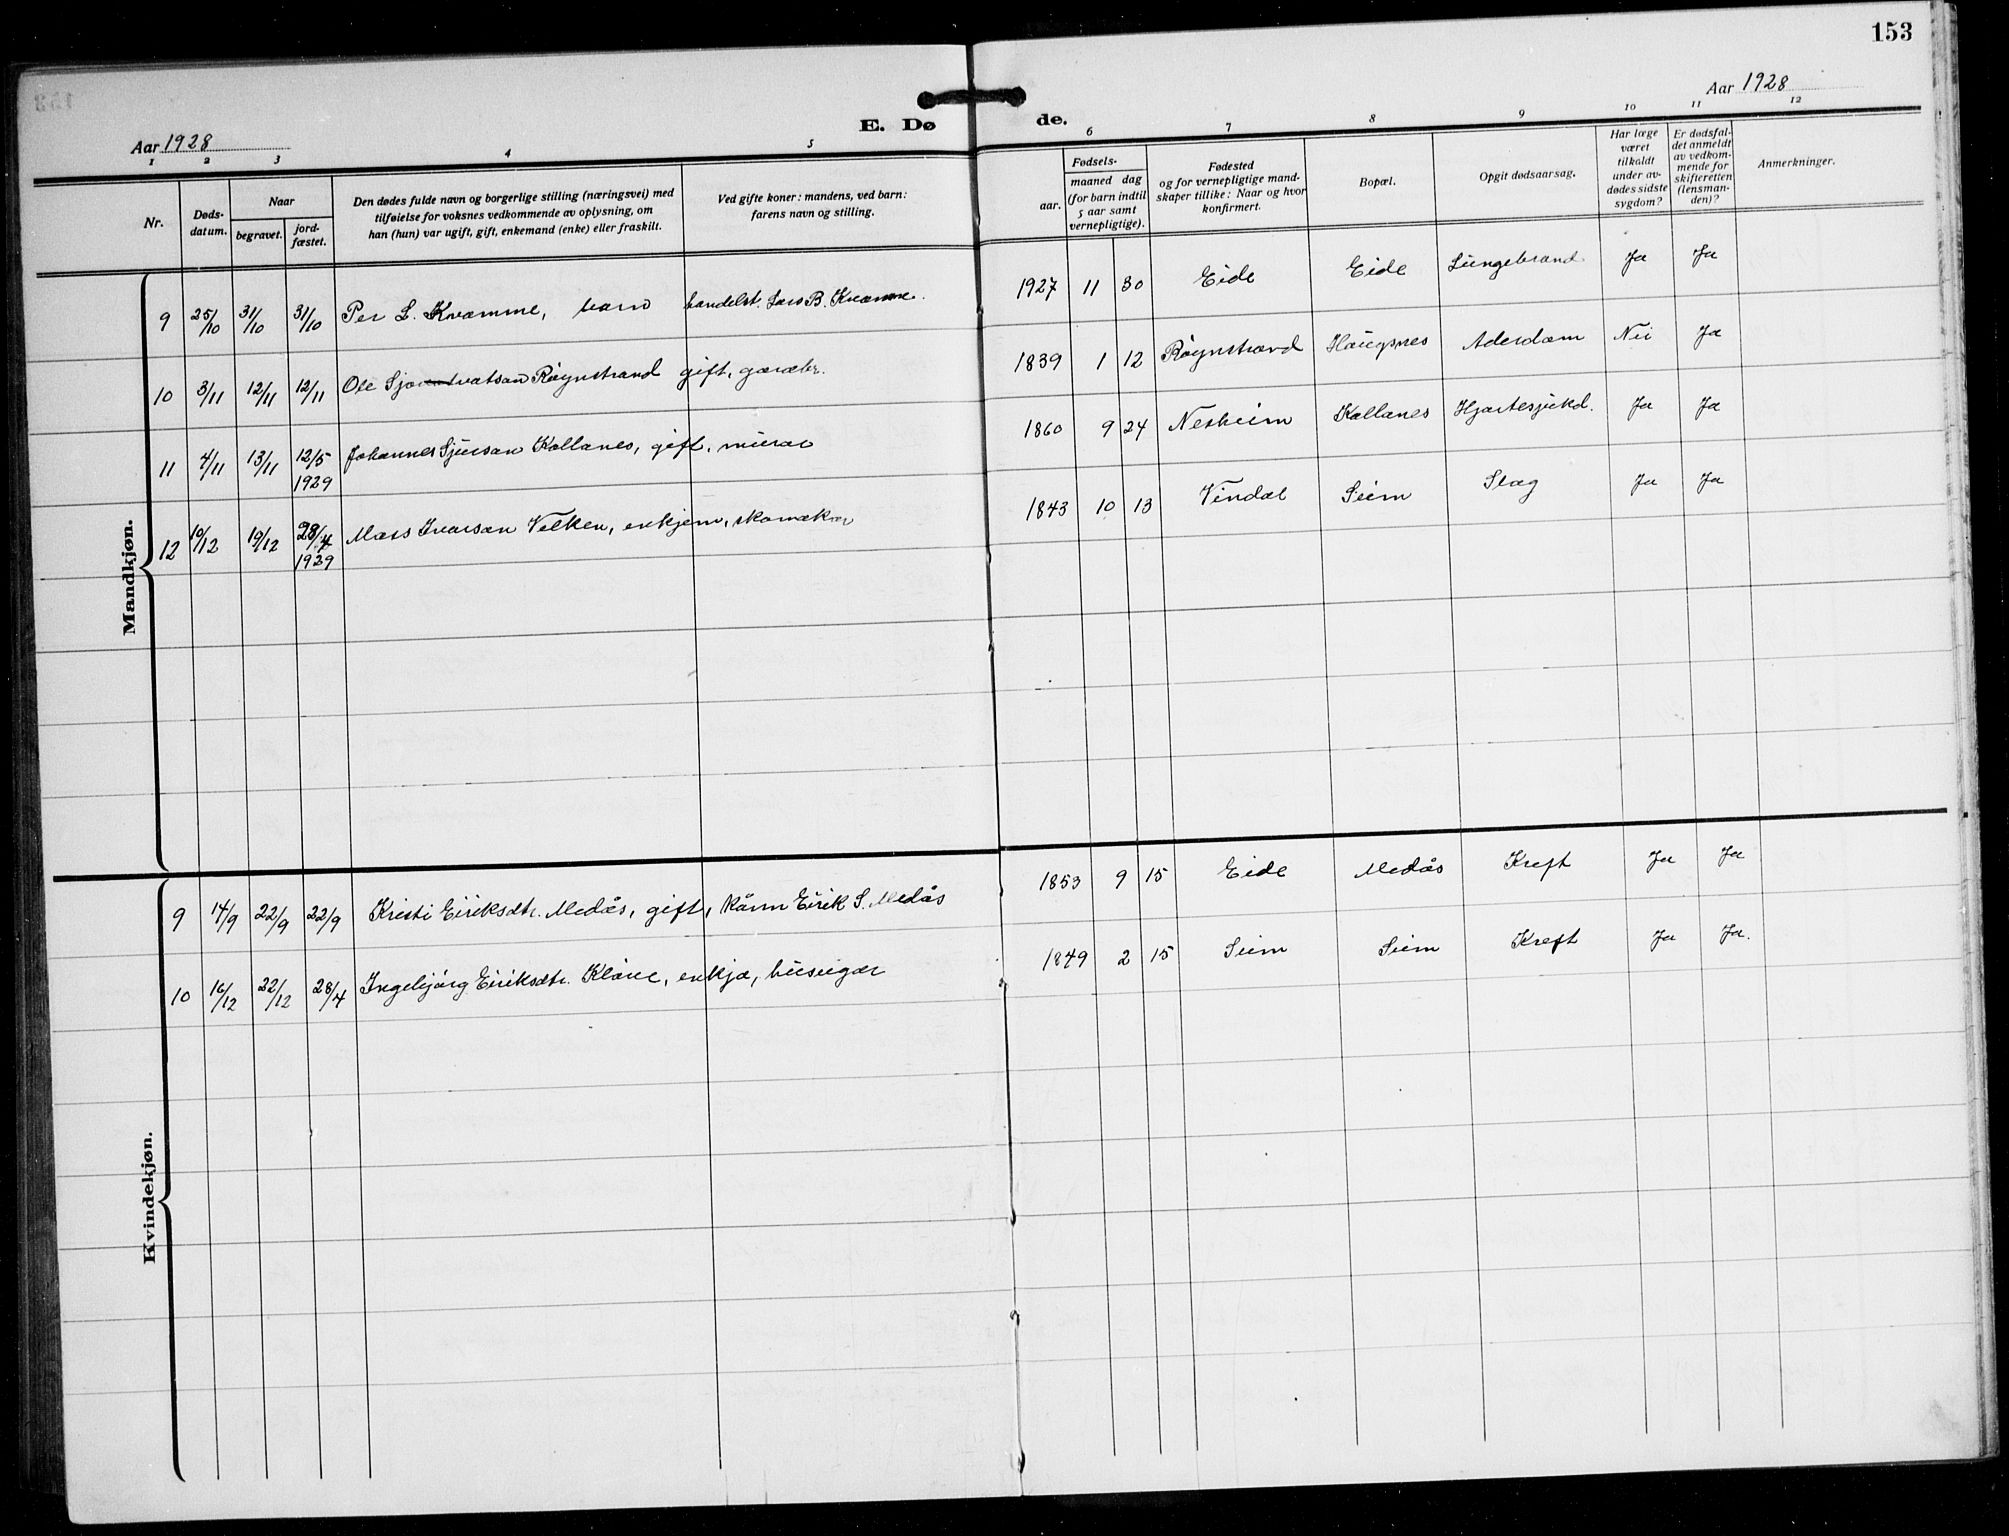 153
Aar 1928
Aar 1928
E. Dø de.
1 2 3 4 5 6 7 8 9 10 11 12
Nr.
Døds-
datum.
Naar
begravet.
jord-
fæstet.
Den dødes fulde navn og borgerlige stilling (næringsvei) med
tilføielse for voksnes vedkommende av oplysning, om
han (hun) var ugift, gift, enkemand (enke) eller fraskilt.
Ved gifte koner: mandens, ved barn:
farens navn og stilling.
Fødsels-
aar.
maaned dag
(for barn indtil
5 aar samt
vernepligtige).
Fødested
og for vernepligtige mand-
skaper tillike: Naar og hvor
konfirmert.
Bopæl.
Opgit dødsaarsag.
Har læge
været
tilkaldt
under av-
dødes sidste
sygdom?
Er dødsfal-
det anmeldt
av vedkom-
mende for
skifteretten
(lensman-
den)?
Anmerkninger.
Mandkjøn.
9 25/10 31/10 31/10 Per L. Kvamme, barn handelst. Lars B. Kvamme. 1927 11 30 Eide Eide Lungebrand Ja Ja
10 3/11 12/11 12/11 Ole Røynstrand gift, gardbr. 1839 1 12 Røynstrand Haugsnes Aderdom Nei Ja
11 4/11 13/11 12/5 Johannes Sjursan Kollanes, gift, murar 1860 9 24 Nesheim Kollanes Hjartesjukd. Ja Ja
1929
12 10/12 19/12 28/4 Mass Ivarsan Velken, enkjem, skomakar 1843 10 13 Vindal Seim Slag Ja Ja
1929
Kvindekjøn.
9 14/9 22/9 22/9 Kristi Eiriksdtr. Medås, gift, Kårm Eirik S. Medås 1853 9 15 Eide Medås Kreft Ja Ja
10 16/12 22/12 28/4 Ingebjørg Eiriksdtr. Kløve, enkja, huseigar 1849 2 15 Seim Seim Kreft Ja Ja.